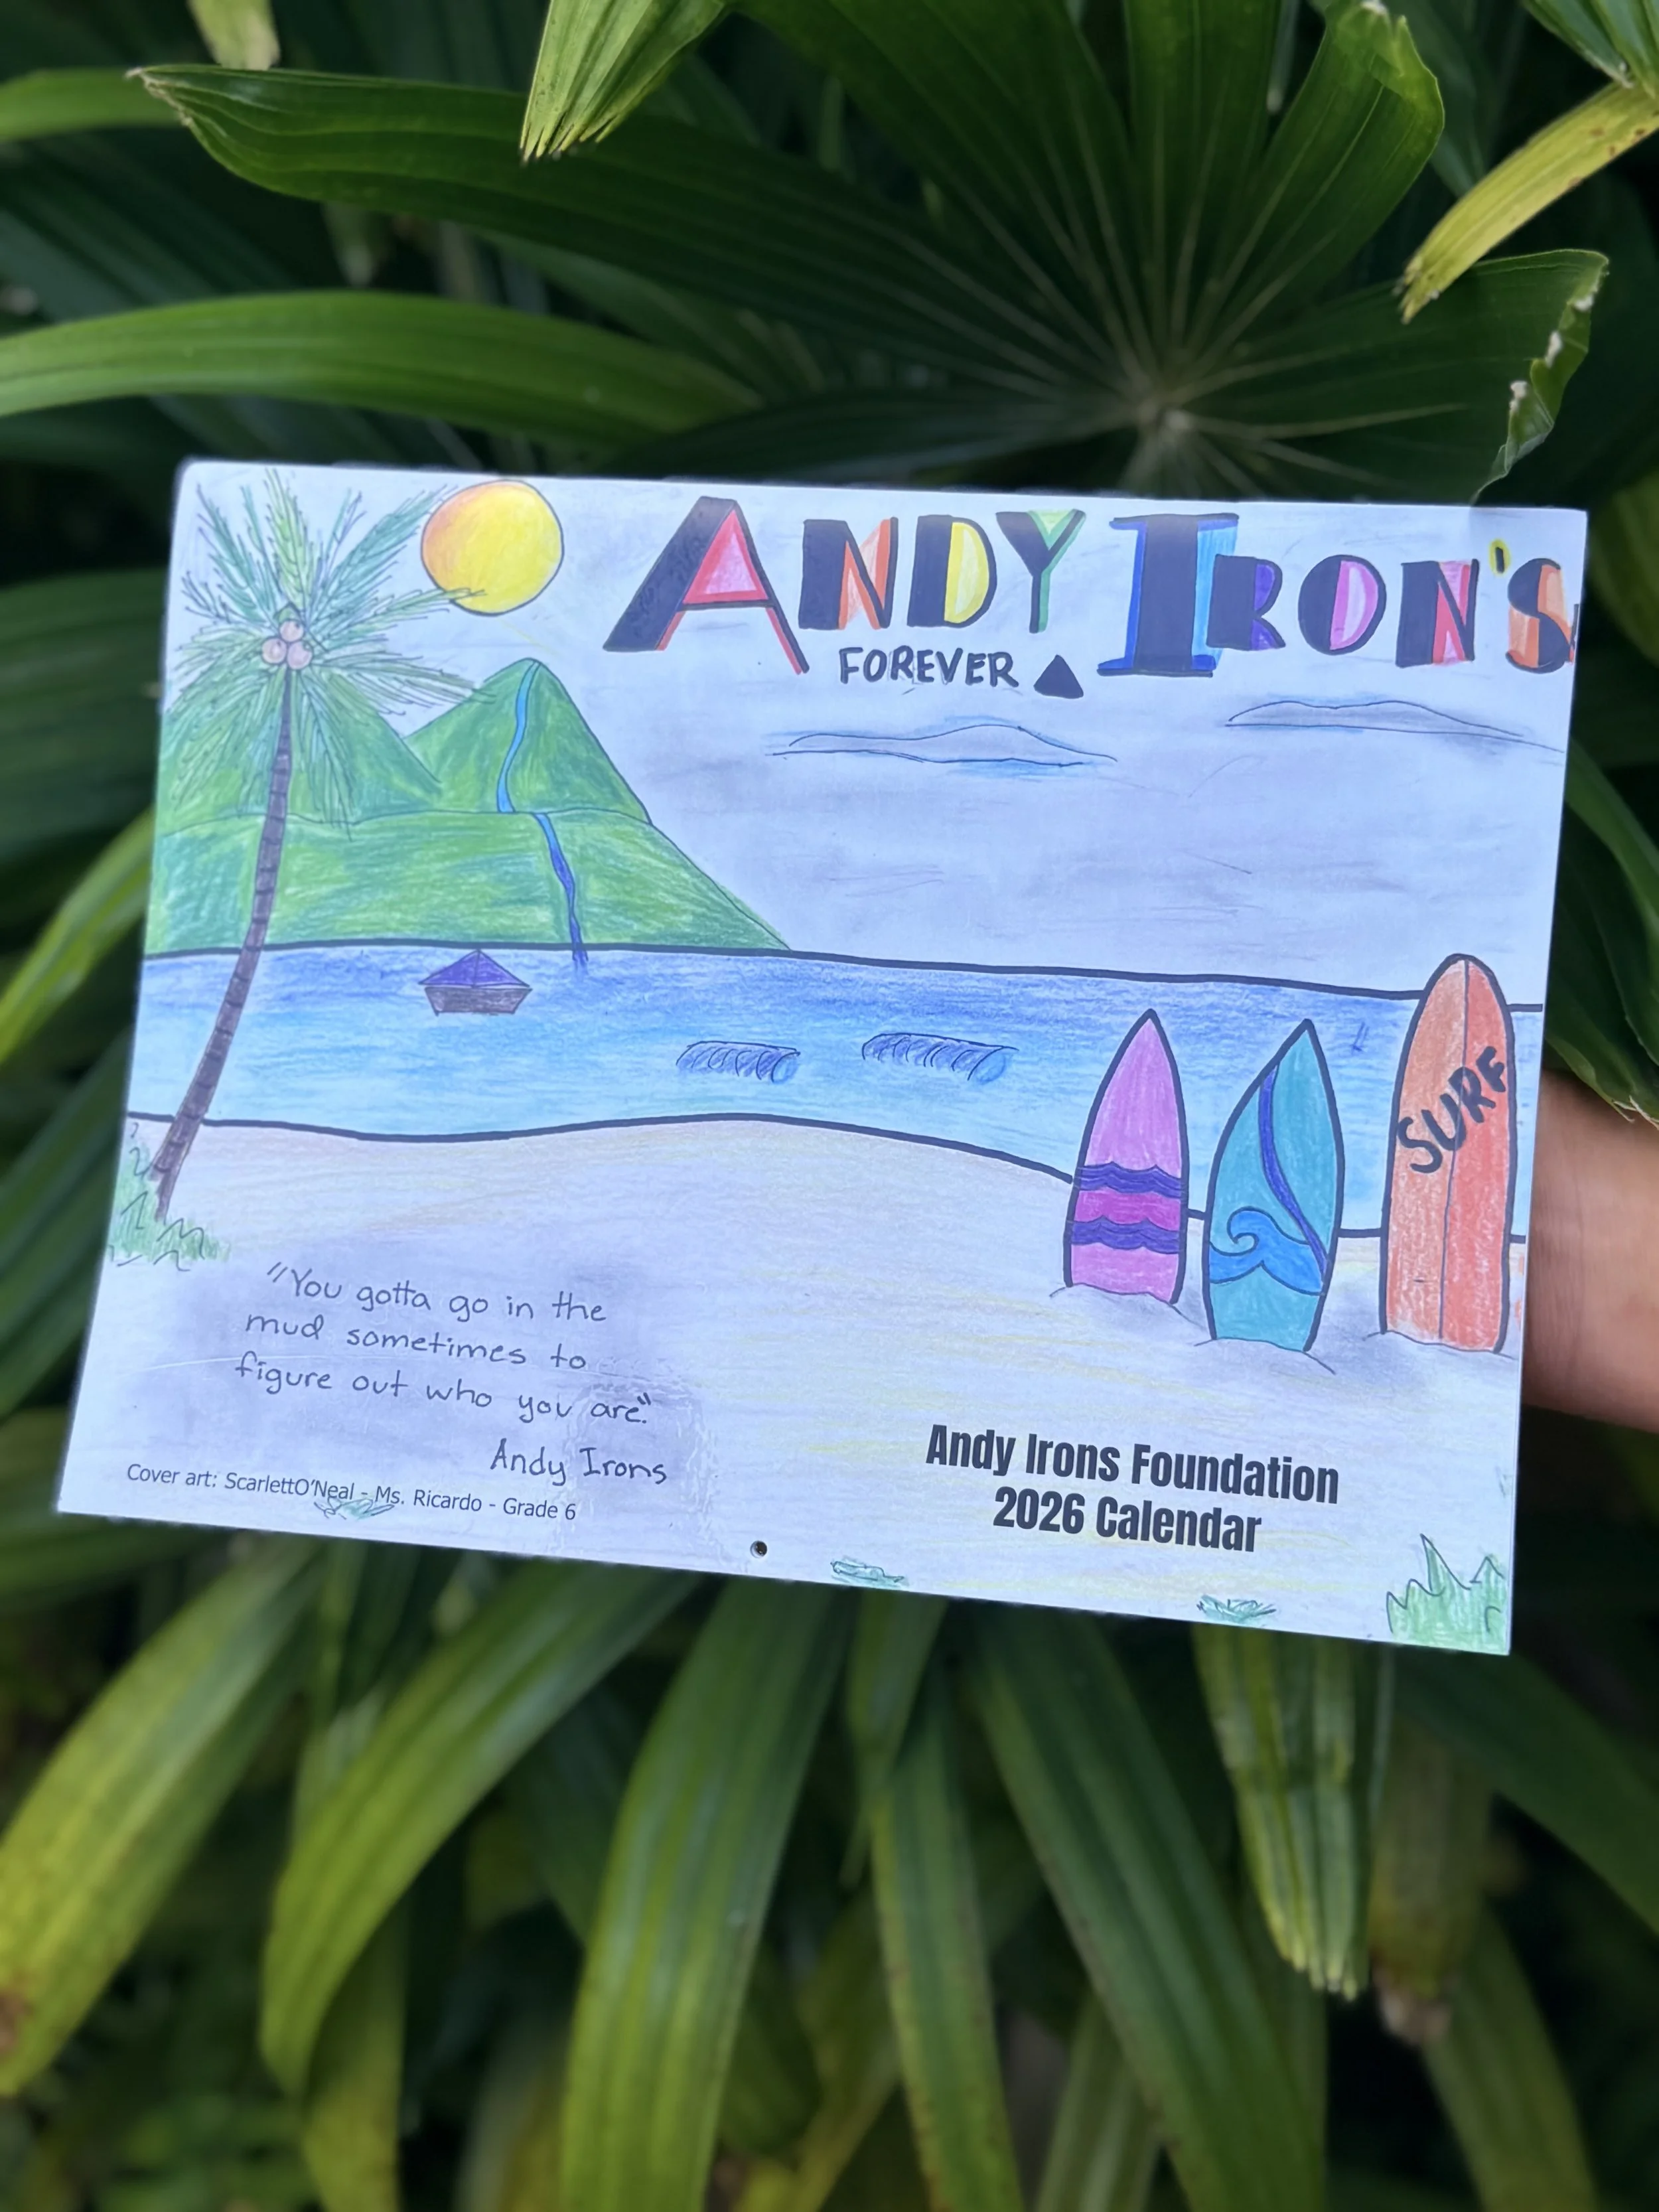 ANDY IRON'S
FOREVER
SURF
"You gotta go in the
mud sometimes to
figure out who you are."
Andy Irons
Cover art: ScarlettO'Neal - Ms. Ricardo - Grade 6
Andy Irons Foundation
2026 Calendar